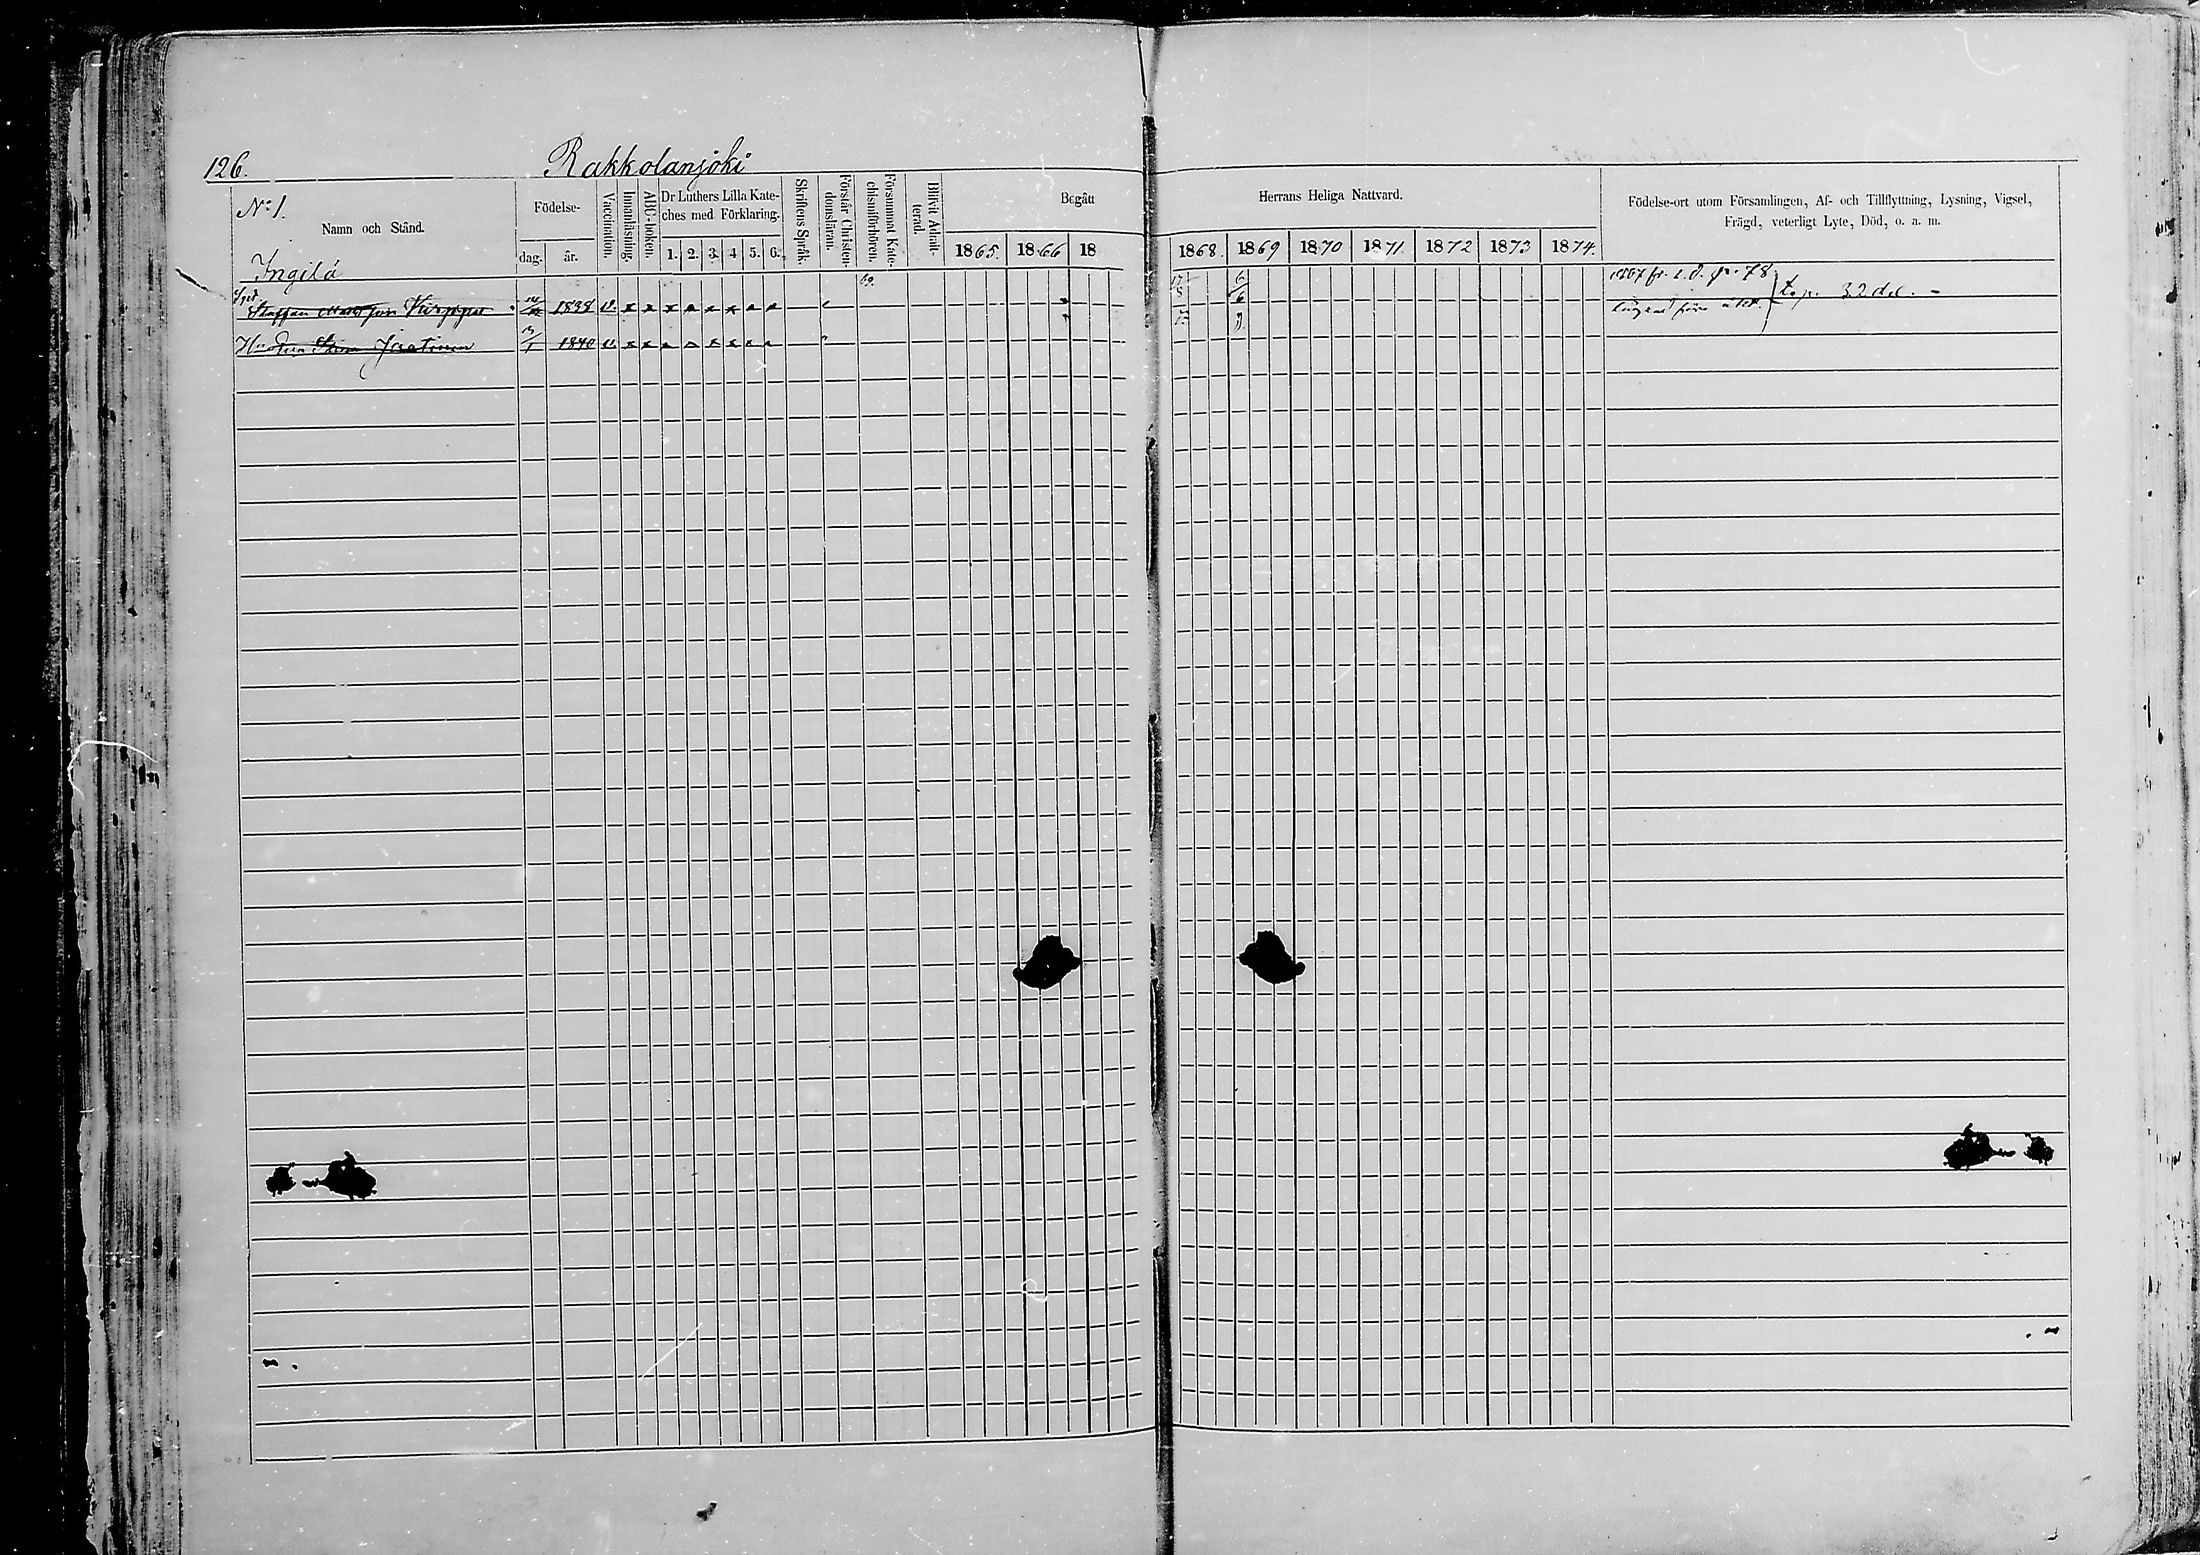 126. Rakkolanjoki
No 1.
Namn och Stånd.
Födelse-
dag. år.
Vaccination.
Innanläsning.
ABC-boken.
Dr Luthers Lilla Kate-
ches med Förklaring.
1. 2. 3. 4 5. 6.
Skriftens Språk.
Förstår Christen-
domsläran.
Försummat Kate-
chismiförhören.
Blifvit Admit-
terad.
Begått
1865. 1866 18
Herrans Heliga Nattvard.
1868. 1869 1870 1871. 1872 1873 1874.
Födelse-ort utom Församlingen, Af- och Tillflyttning, Lysning, Vigsel,
Frägd, veterligt Lyte, Död, o. a. m.
Ingilä
69.
17 6
1867 fr. s. d. p. 78
Staffan 1838 v. x x x x x x x x
6
t. p. 32 d. d. -
Hu 3/1 1840 v. x x x x x x x x